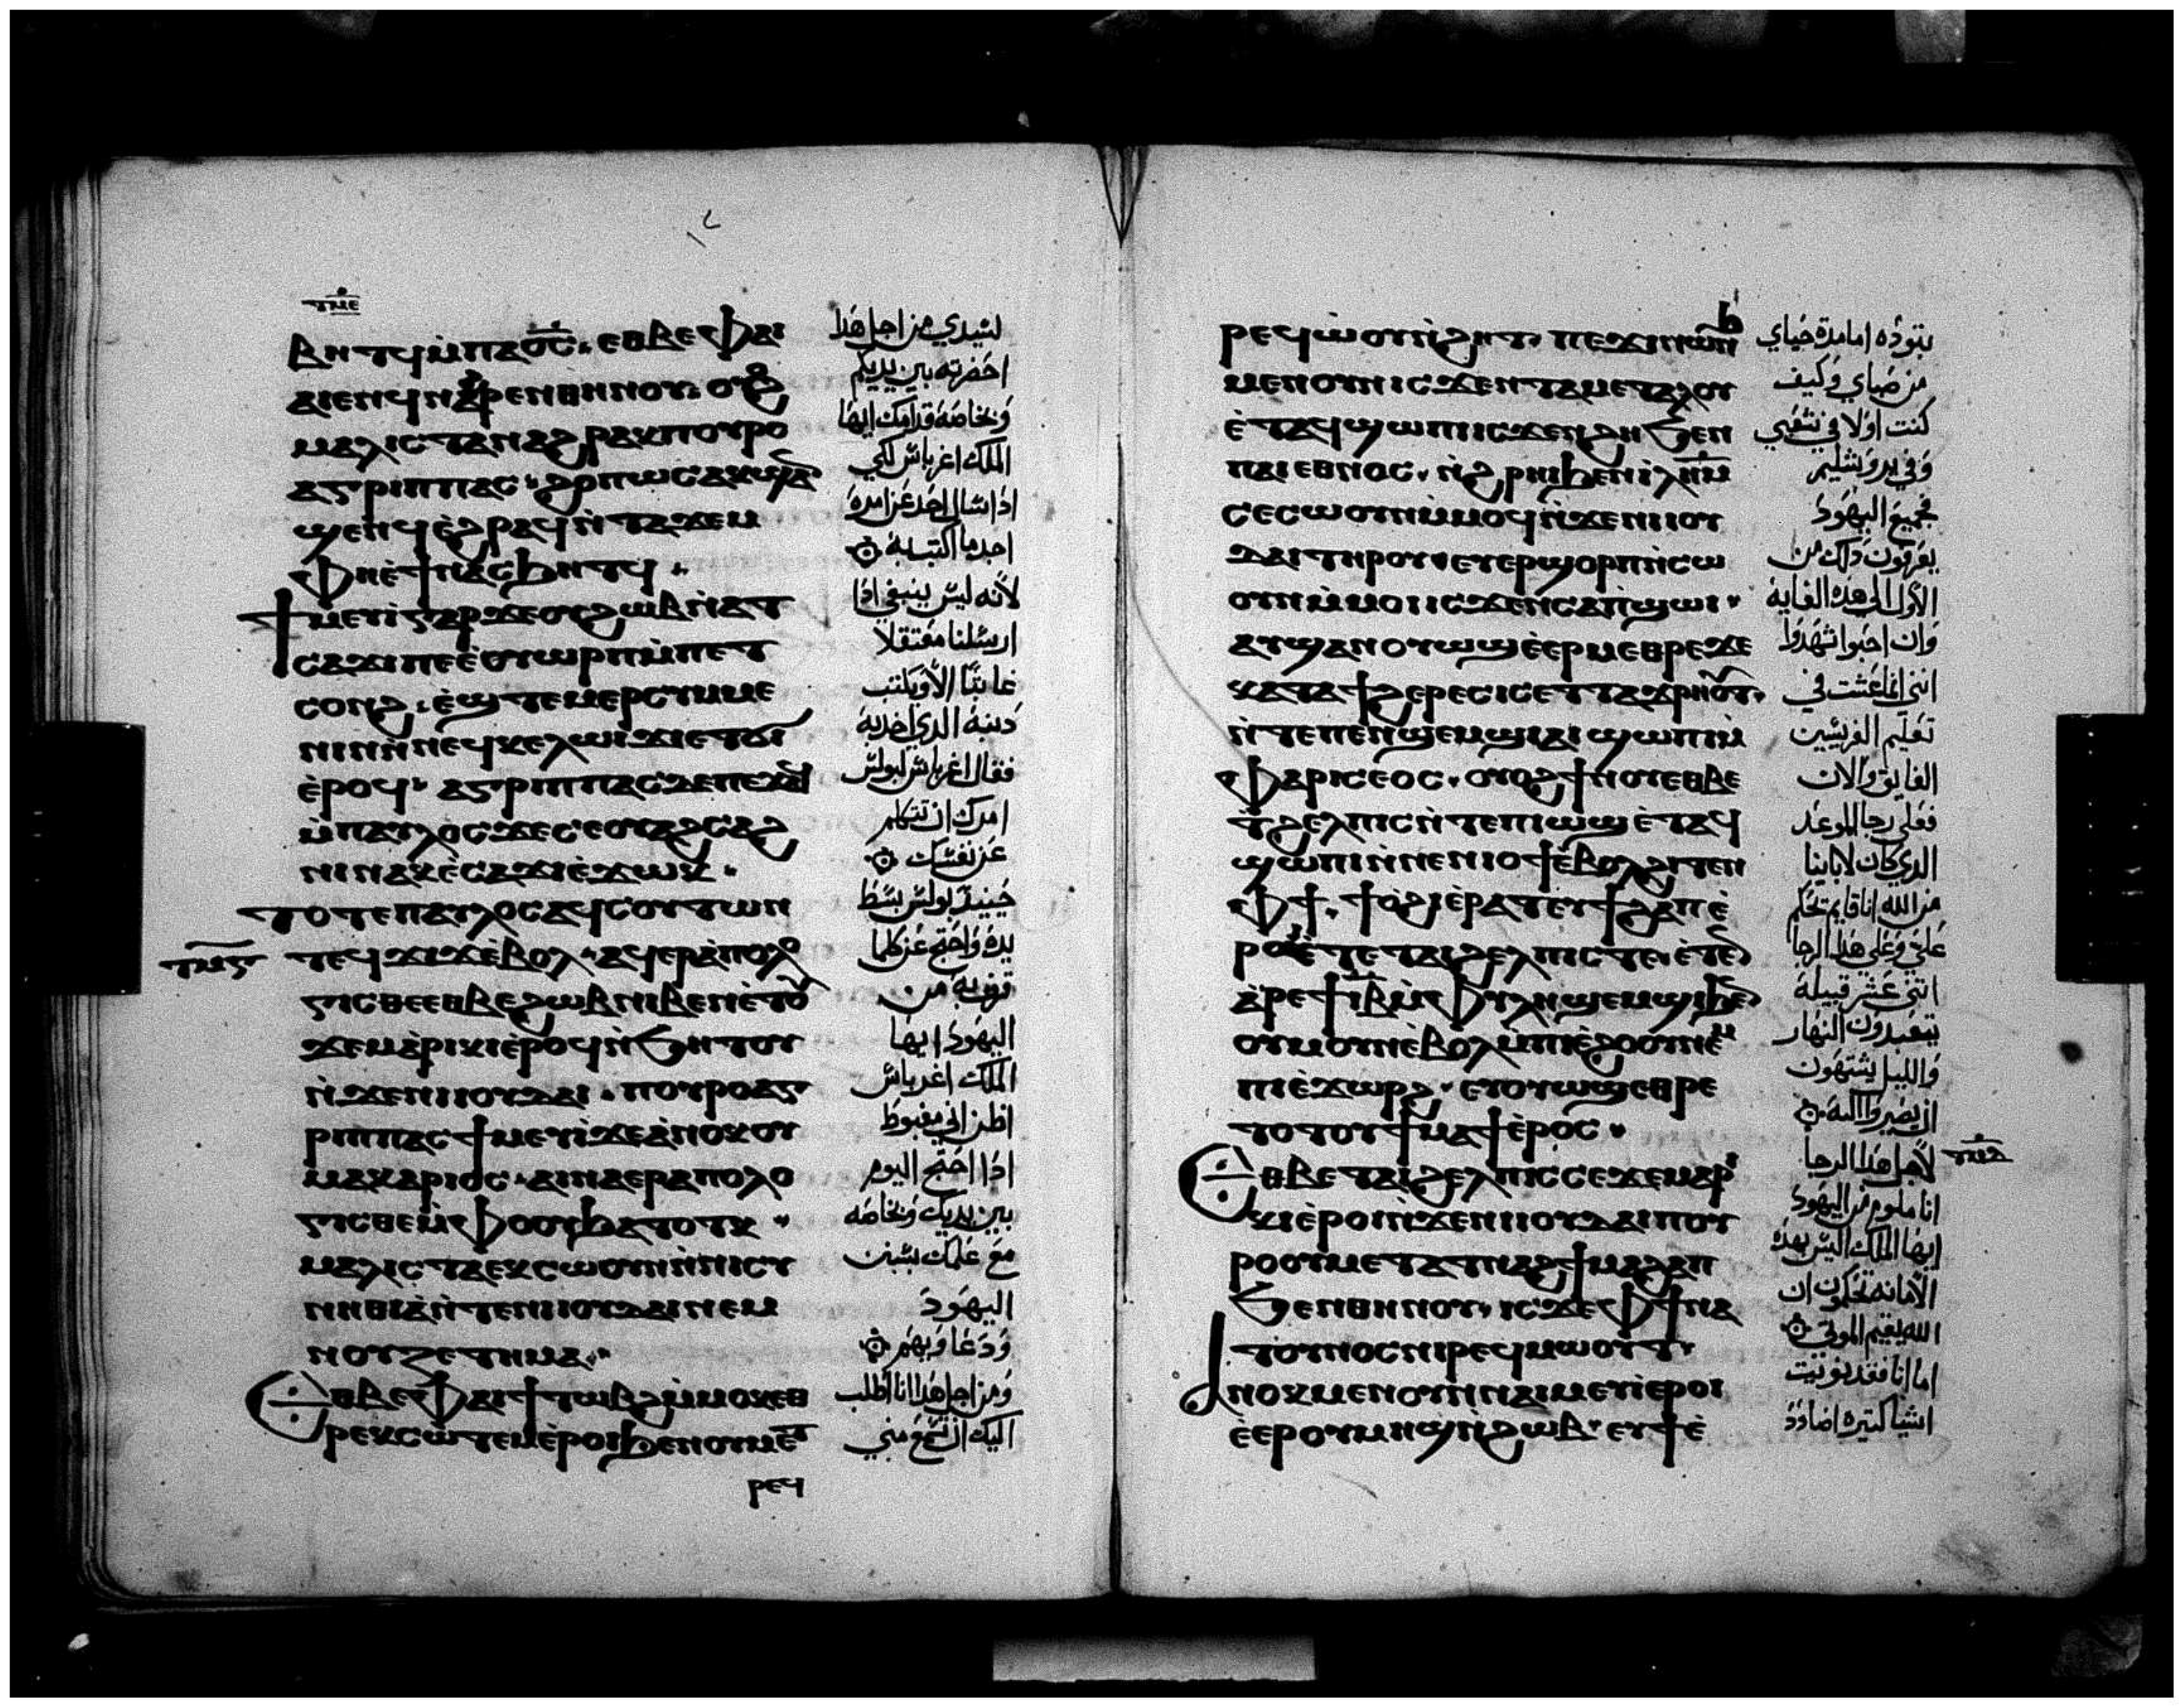 ⲧⲙⲉ
ⲃⲏⲧϥ ⲙ̀ⲡⲁⲟ̅ⲥ̅. ⲉⲑⲃⲉ ⲫⲁⲓ
ⲁⲓⲉⲛϥ ⲛⲁϩⲣⲉⲛ ⲑⲏⲛⲟⲩ. ⲟⲩⲟϩ
ⲙⲁⲗⲓⲥⲧⲁ ⲛⲁϩⲣⲁⲕ ⲡⲟⲩⲣⲟ
ⲁⲅⲣⲓⲡⲡⲁⲥ. ϩⲟⲡⲱⲥ ⲁⲕϣⲁⲛ
ϣⲉⲛϥ ⲉ̀ϩⲣⲁϥ ⲛ̀ⲧⲁϫⲉⲙ
ⲫⲏ ⲉ̀ϯⲛⲁⲥϧⲏⲧϥ.
ϯⲙⲉⲩⲓ̀ ⲅⲁⲣ ϫⲉ ⲟⲩϩⲱⲃ ⲛ̀ⲁⲧ
ⲥⲁϫⲓ ⲡⲉ ⲉ̀ⲟⲩⲱⲣⲡ ⲙ̀ⲡⲉⲧ
ⲥⲟⲛϩ. ⲉ̀ϣⲧⲉⲙⲉⲣⲥⲩⲙⲙⲉ
ⲛⲓⲛ ⲛ̀ⲛⲉϥⲕⲉⲗⲱⲓϫⲓ ⲉⲧⲟⲓ
ⲉ̀ⲣⲟϥ. ⲁⲅⲣⲓⲡⲡⲁⲥ ⲇⲉ ⲡⲉϫⲁϥ
ⲙ̀ⲡⲁⲩⲗⲟⲥ ϫⲉ ⲥⲉⲟⲩⲁϩⲥⲁϩ
ⲛⲓ ⲛⲁⲕ ⲉ̀ⲥⲁϫⲓ ⲉ̀ϫⲱⲕ.
ⲧⲟⲧⲉ ⲡⲁⲩⲗⲟⲥ ⲁϥⲥⲟⲩⲧⲱⲛ
ⲧⲙⲋ
ⲧⲉϥϫⲓϫ ⲉ̀ⲃⲟⲗ. ⲁϥⲉⲣⲁ̀ⲡⲟⲗⲟ
ⲅⲓⲥⲑⲉ ⲉⲑⲃⲉ ϩⲱⲃ ⲛⲓⲃⲉⲛ ⲉ̀ⲧⲟⲩ
ϫⲉⲙⲁ̀ⲣⲓⲕⲓ ⲉ̀ⲣⲟϥ ⲛ̀ϧⲏⲧⲟⲩ
ⲛ̀ϫⲉ ⲛⲓⲓⲟⲩⲇⲁⲓ. ⲡⲟⲩⲣⲟ ⲁⲅ
ⲣⲓⲡⲡⲁⲥ ϯⲙⲉⲩⲓ̀ ϫⲉ ⲁ̀ⲛⲟⲕ ⲟⲩ
ⲙⲁⲕⲁⲣⲓⲟⲥ. ⲁⲓⲛⲁⲉⲣⲁⲡⲟⲗⲟ
ⲅⲓⲥⲑⲉ ⲙ̀ⲫⲟⲟⲩ ϧⲁⲧⲟⲧⲕ.
ⲙⲁⲗⲓⲥⲧⲁ ⲉⲕⲥⲱⲟⲩⲛ ⲛ̀ⲛⲓⲥⲩ
ⲛⲏⲑⲓⲁ̀ ⲛ̀ⲧⲉ ⲛⲓⲓⲟⲩⲇⲁⲓ ⲛⲉⲙ
ⲛⲟⲩⲍⲉⲧⲏⲙⲁ.
ⲉⲑⲃⲉ ⲫⲁⲓ ϯⲧⲱⲃϩ ⲙ̀ⲙⲟⲕ ⲉⲑ
ⲣⲉⲕⲥⲱⲧⲉⲙ ⲉ̀ⲣⲟⲓ ϧⲉⲛ ⲟⲩⲙⲉⲧ
ⲣⲉϥ
لسيدي من اجل هذا
احضرته بين يديكم
وبخاصة قدامك ايها
الملك اغرباس لكي
اذا سال احد عن امره
اجد ما اكتب به
لأنه ليس ينبغي اذا
ارسلنا معتقلا
غايبًا الا ويكتب
دنبه الدي اخد به
فقال اغرباس لبولس
امرك ان تتكلم
عن نفسك
حينيد بولس بسط
يده واحتج عن كلما
قرف به من
اليهود ايها
الملك اغرباس
اظن اني مغبوط
اذا احتج اليوم
بين يديك وبخاصه
مع علمك بسنن
اليهود
ودعاويهم
ومن اجل هذا انا اطلب
اليك ان تسمع مني
ⲣⲉϥⲱ̀ⲟⲩⲛ̀ϩⲏⲧ. ⲡⲉϫⲓⲛⲱⲛϧ
ⲙⲉⲛ ⲟⲩⲛ ⲓⲥϫⲉⲛ ⲧⲁⲙⲉⲧⲁⲗⲟⲩ
ⲉ̀ⲧⲁϥϣⲱⲡⲓ ⲓⲥϫⲉⲛ ϩⲏ ϧⲉⲛ
ⲡⲁⲓⲉⲑⲛⲟⲥ. ⲛ̀ϩⲣⲏⲓ ϧⲉⲛ ⲓ̀ⲗ̅ⲏ̅ⲙ̅
ⲥⲉⲥⲱⲟⲩⲛ ⲙ̀ⲙⲟϥ ⲛ̀ϫⲉ ⲛⲓⲓⲟⲩ
ⲇⲁⲓ ⲧⲏⲣⲟⲩ. ⲉⲩⲉⲣϣⲟⲣⲡ ⲛ̀ⲥⲱ
ⲟⲩⲛ ⲙ̀ⲙⲟⲓ ⲓⲥϫⲉⲛ ⲥⲁⲡ̀ϣⲱⲓ.
ⲁⲩϣⲁⲛⲟⲩⲱϣ ⲉ̀ⲉⲣⲙⲉⲑⲣⲉ ϫⲉ
ⲕⲁⲧⲁ ϯϩⲉⲣⲉⲥⲓⲥ ⲉⲧⲧⲁϫⲣⲏⲟⲩⲧ
ⲛ̀ⲧⲉ ⲡⲉⲛϣⲉⲙϣⲓ ⲁⲓϣⲱⲡⲓ ⲙ̀
ⲫⲁⲣⲓⲥⲉⲟⲥ. ⲟⲩⲟϩ ϯⲛⲟⲩ ⲉⲑⲃⲉ
ⲧϩⲉⲗⲡⲓⲥ ⲛ̀ⲧⲉ ⲡⲓⲱϣ ⲉ̀ⲧⲁϥ
ϣⲱⲡⲓ ⲛ̀ⲛⲉⲛⲓⲟϯ ⲉ̀ⲃⲟⲗ ϩⲓⲧⲉⲛ
ⲫϯ. ϯⲟ̀ϩⲓ ⲉ̀ⲣⲁⲧ ⲉⲩϯϩⲁⲡ ⲉ̀
ⲣⲟⲓ ⲉ̀ⲧⲉ ⲧⲁⲓϩⲉⲗⲡⲓⲥ ⲧⲉ. ⲉ̀ⲧⲉ
ⲁ̀ⲣⲉ ϯⲓ̅ⲃ̅ ⲙ̀ⲫⲩⲗⲏ ϣⲉⲙϣⲓ ϧⲉⲛ
ⲟⲩⲙⲟⲩⲛ ⲉ̀ⲃⲟⲗ ⲙ̀ⲡⲓⲉ̀ϩⲟⲟⲩ ⲛⲉⲙ
ⲡⲓⲉ̀ϫⲱⲣϩ. ⲉⲩⲟⲩⲱϣ ⲉⲑⲣⲉ
ⲧⲟⲧⲟⲩ ϯⲙⲁϯ ⲉ̀ⲣⲟⲥ.
ⲉⲑⲃⲉ ⲧⲁⲓϩⲉⲗⲡⲓⲥ ⲥⲉϫⲉⲙⲁⲣⲓ
ⲕⲓ ⲉ̀ⲣⲟⲓ ⲛ̀ϫⲉ ⲛⲓⲓⲟⲩⲇⲁⲓ ⲡⲟⲩ
ⲣⲟ ⲟⲩⲙⲉⲧⲁⲧⲛⲁϩϯ ⲙⲁϩⲁⲡ
ϧⲉⲛ ⲑⲏⲛⲟⲩ. ⲓⲥϫⲉ ⲫϯ ⲛⲁ
ⲧⲟⲩⲛⲟⲥ ⲛⲓⲣⲉϥⲙⲱⲟⲩⲧ.
ⲁⲛⲟⲕ ⲙⲉⲛ ⲟⲩⲛ ⲛⲁⲓⲙⲉⲩⲓ̀ ⲉⲣⲟⲓ
ⲉ̀ⲉⲣ ⲟⲩⲙⲏϣ ⲛ̀ϩⲱⲃ. ⲉⲩϯ ⲉ̀
بتوده اما مدة حياي
من صباي وكيف
كنت اولا في شعبي
وفي يروشليم
فجميع اليهود
يعرفون ذلك من
الاول الى هذه الغاية
وان احبوا شهدوا
انني انما عشت في
تعليم الفريسين
الفايق والان
فعلى رجا الموعد
الدي كان لاباينا
من الله انا قايم تحكم
علي وعلى هذا الرجا
اثني عشر قبيلة
يتعبدون النهار
والليل يشتهون
ان يصيروا اليه
لاجل هذا الرجا
ⲧⲙⲇ
انا ملوم من اليهود
ايها الملك اليس بهذه
الأمانه تحكمون ان
الله يقيم الموتى
اما انا فقد نويت
اشيا كتيره اضادد